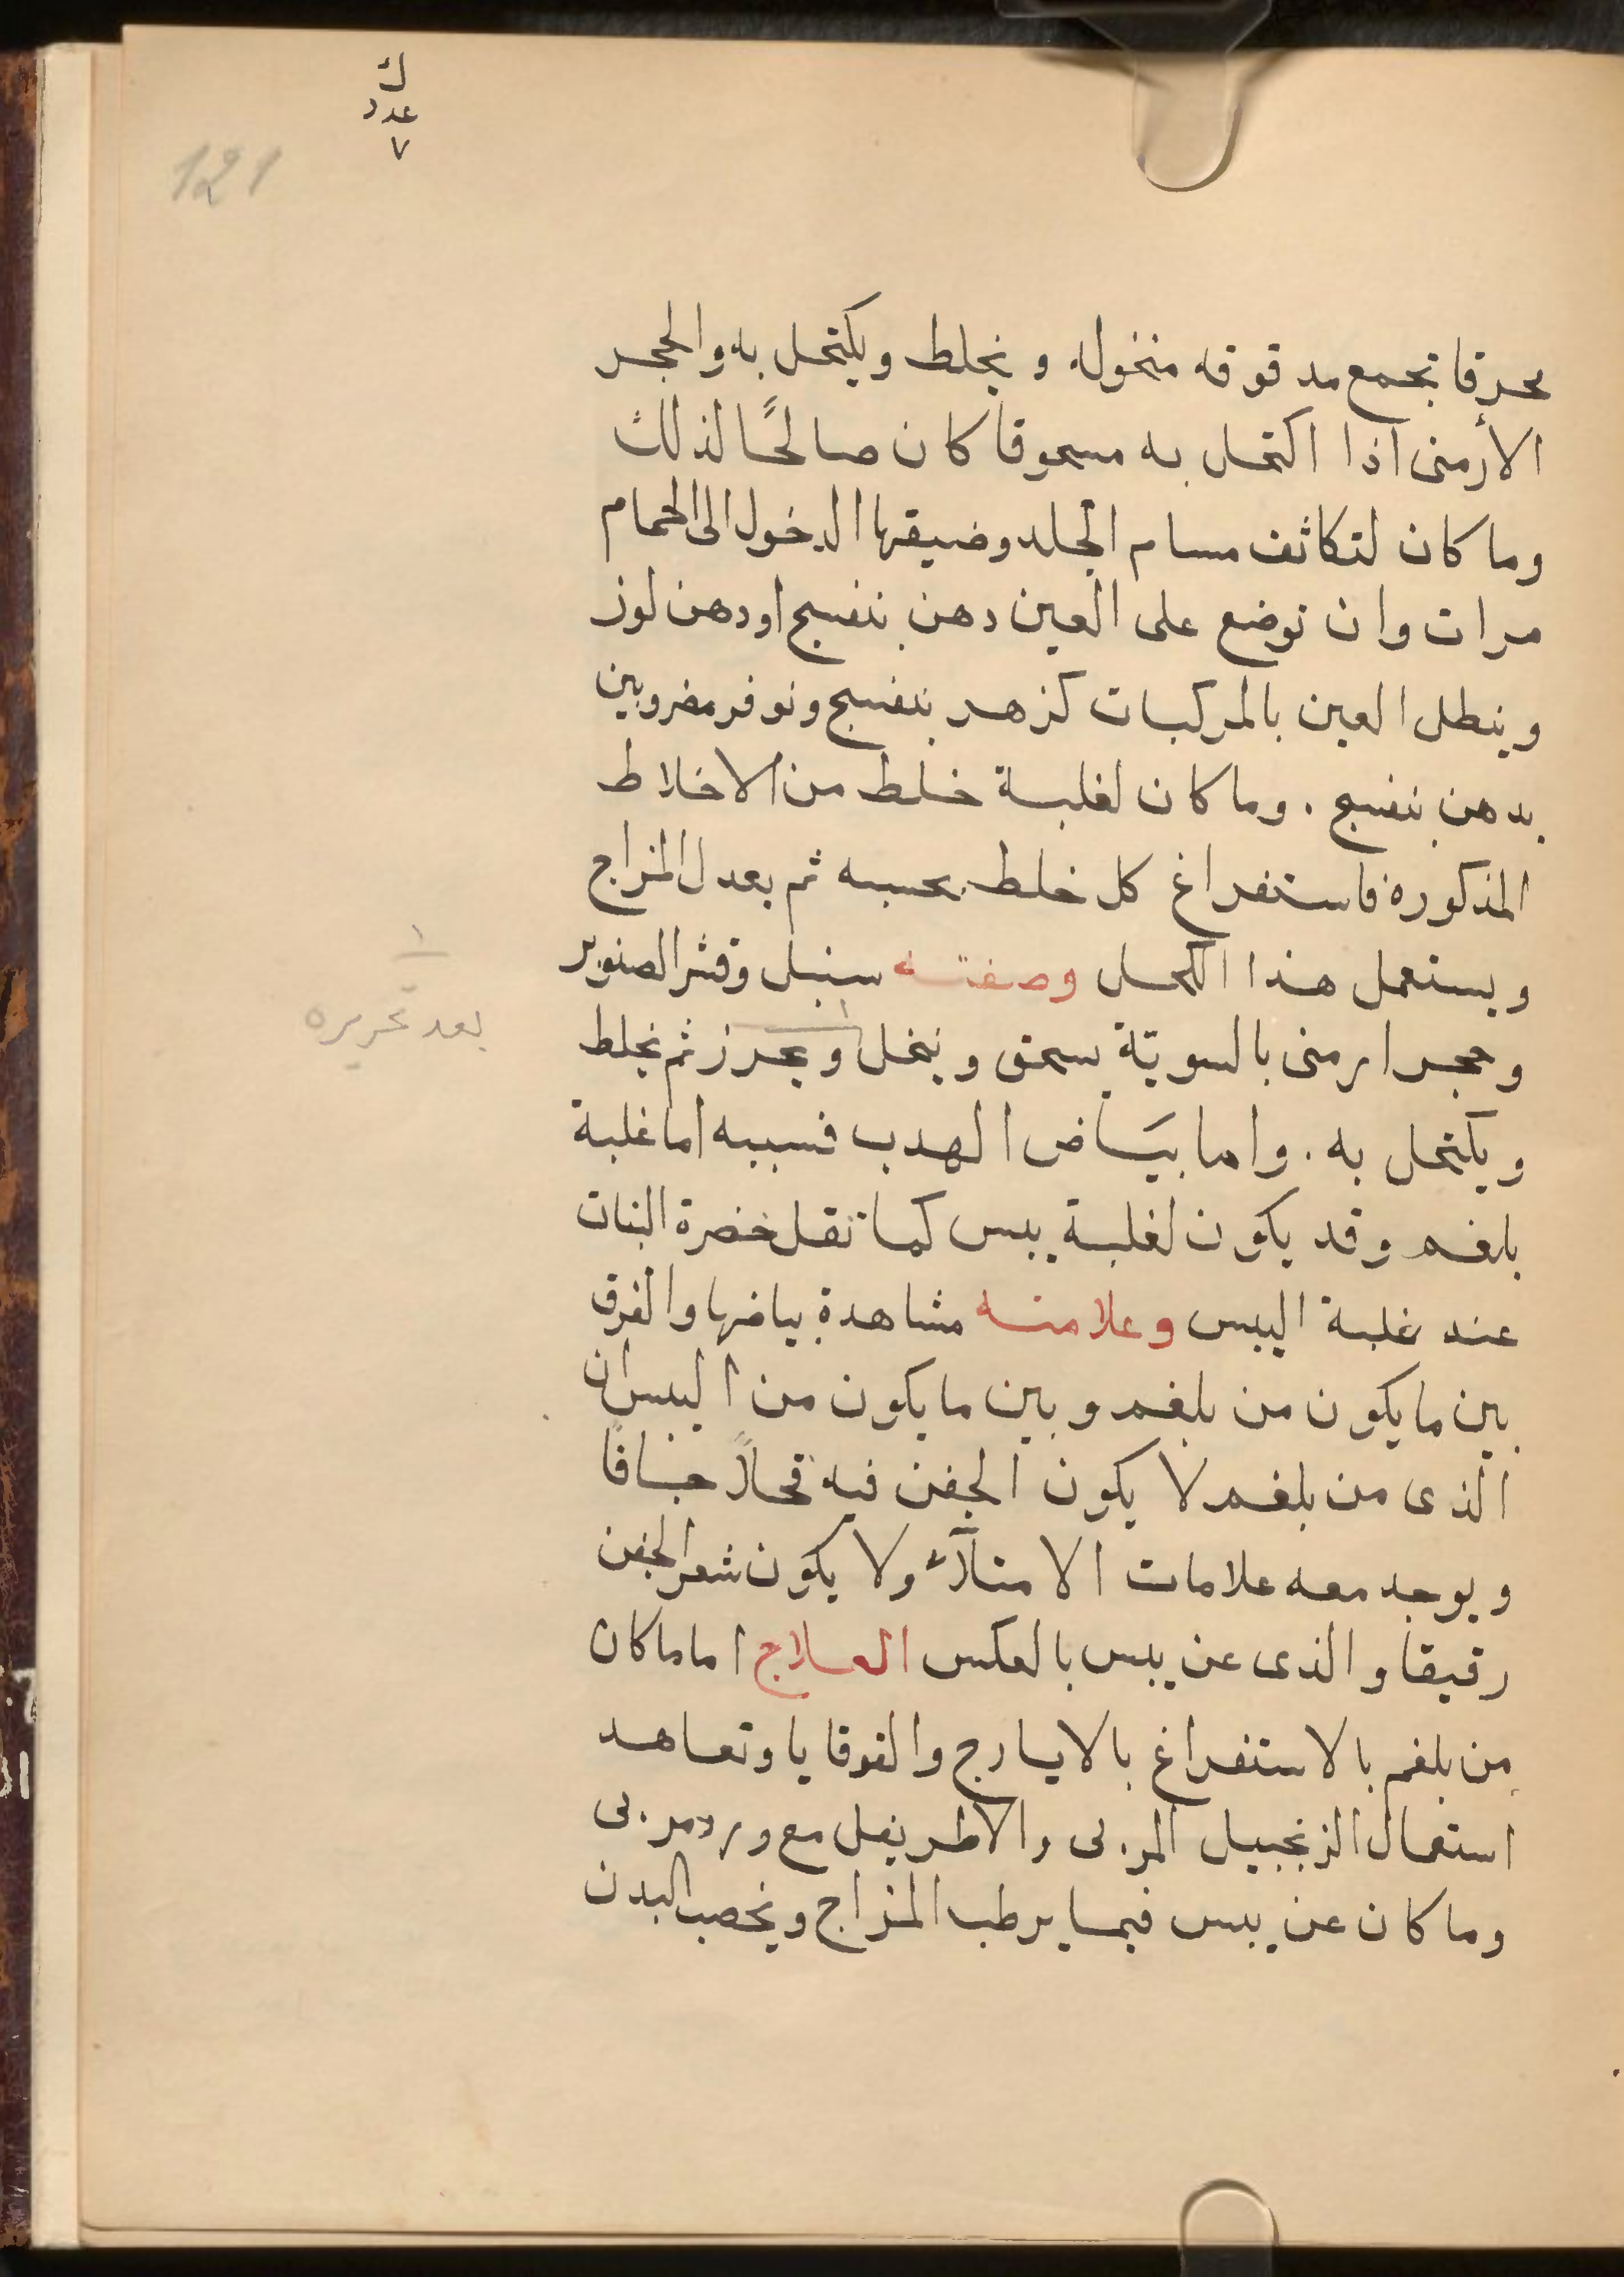 ك
عدد
٧
121
محرقا تجمع مدقوقه منخوله ويخلط ويكتحل به والحجر
الأرمنى اذا اكتحل به مسحوقا كان صالحًا لذلك
وما كان لتكاثف مسام الجلد وضيقها الدخول الى الحمام
مرات وان توضع على العين دهن بنفسج او دهن لوز
وينطل العين بالمركبات كزهر بنفسج ونوفر مضروبين
بدهن بنفسج . وما كان لغلبة خلط من الاخلاط
المذكورة فاستفراغ كل خلط بحسبه ثم يعدل المزاج
ويستعمل هذا الكحل وصفته سنبل وقشر الصنوبر
وحجر ارمنى بالسوية يسحق وينخل ويحرز ثم يخلط
١
بعد تحريره
ويكتحل به . واما بيَاض الهدب فسببه اما غلبة
بلغم وقد يكون لغلبة يبس كما تقل خضرة النبات
عند غلبة اليبس وعلامته مشاهدة بياضها والفرق
بين ما يكون من بلغم وبين ما يكون من اليبس ان
الذى من بلغم لا يكون الجفن فيه قحلاً جافًا
ويوجد معه علامات الامتلآء ولا يكون شعر الجفن
رقيقا والذى عن يبس بالعكس العلاج اما ما كان
من بلغم بالاستفراغ بالايارج والقوقايا وتعاهد
استعمال الزنجبيل المربى والاطريفل مع ورد مربى
وما كان عن يبس فبما يرطب المزاج ويخصب البدن